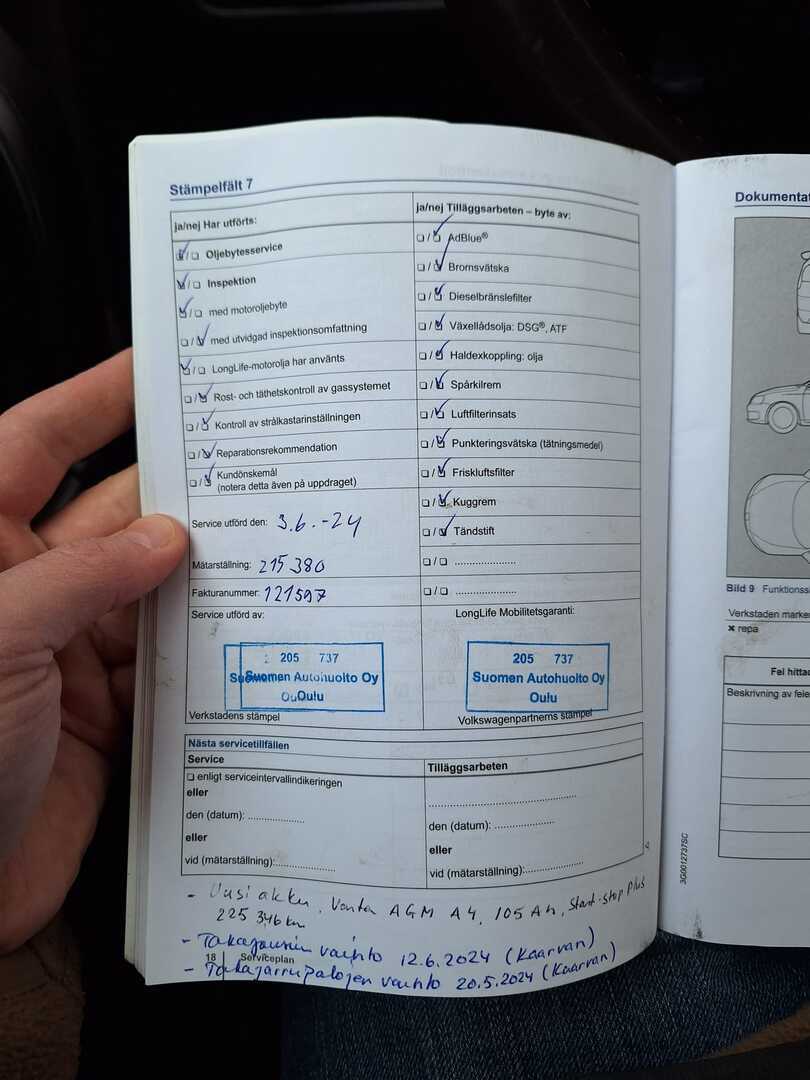 Stämpelfält 7
ja/nej Har utförts:
Oljebytesservice
Inspektion
med motoroljebyte
med utvidgad inspektionsomfattning
LongLife-motorolja har använts
Rost- och täthetskontroll av gassystemet
Kontroll av strålkastarinställningen
Reparationsrekommendation
Kundönskemål
(notera detta även på uppdraget)
Service utförd den: 3.6.-24
Mätarställning: 215 380
Fakturanummer: 121597
Service utförd av:
205 737
Suomen Autohuolto Oy
Oulu
Verkstadens stämpel
ja/nej Tilläggsarbeten – byte av:
AdBlue®
Bromsvätska
Dieselbränslefilter
Växellådsolja: DSG®, ATF
Haldexkoppling: olja
Spårkilrem
Luftfilterinsats
Punkteringsvätska (tätningsmedel)
Friskluftsfilter
Kuggrem
Tändstift
LongLife Mobilitetsgaranti:
205 737
Suomen Autohuolto Oy
Oulu
Volkswagenpartnerns stämpel
Nästa servicetillfällen
Service
enligt serviceintervallindikeringen
eller
den (datum): ....................
eller
vid (mätarställning):.....................
Tilläggsarbeten
den (datum): .....................
eller
vid (mätarställning):....................
- Uusi akku, Varta AGM A4, 105 Ah, Start-stop Plus
225 346 km
- Takajousien vaihto 12.6.2024 (Kaarvan)
- Takajarrupalojen vaihto 20.5.2024 (Kaarvan)
18 Serviceplan
Dokumentat
Bild 9 Funktionss
Verkstaden marke
✖ repa
Fel hitta
Beskrivning av fele
3G0012737SC